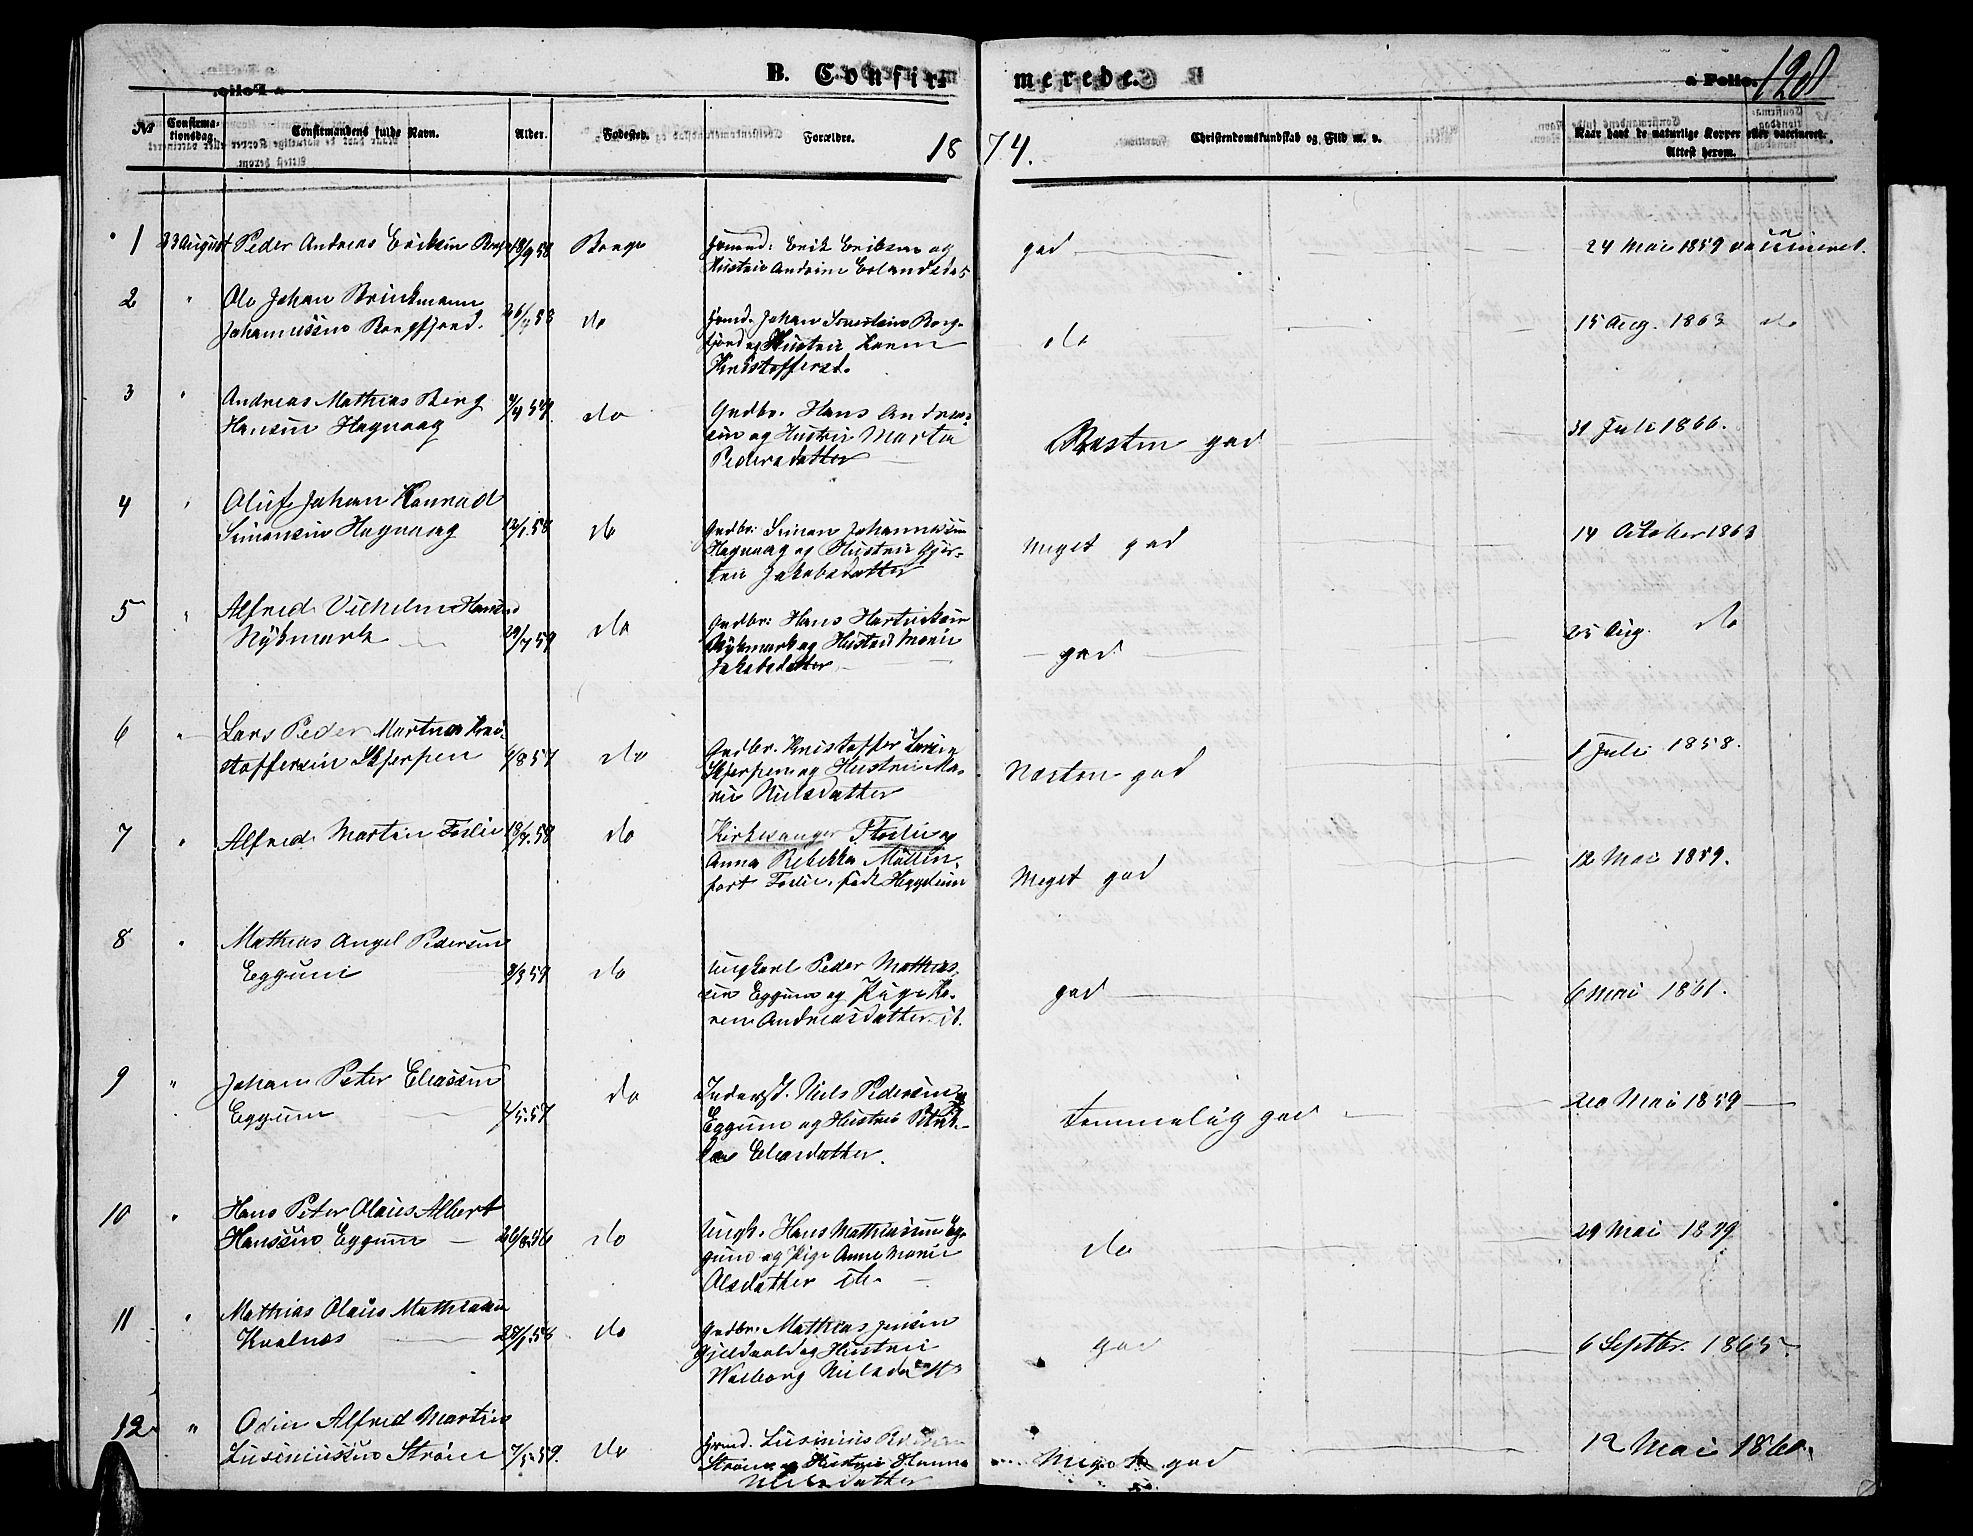 B. Confir-
merede.
a Folio. 128
No
Confirma-
tionsdag.
Confirmandens fulde Navn.
Alder.
Fødested.
Forældre.
Christendomskundskab og Flid m. v.
Naar havt de naturlige Kopper eller vaccineret.
Attest herom.
18 74.
1 23 August Peder Andreas Eriksen Borge 18/9 58 Borge
Erik Eriksen og
Hustru Andrine Erlandsda
god
24 Mai 1859 vaccineret.
2 " Ole Johan Brinkmann
Johannessen Borgfjord. do
Johan Borg-
fjord og Hustru Karen
Kristoffersd.
do
15 Aug. 1863 do
3 " Andreas Mathias Berg
Hansen Hagvaag do
Gødbr. Hans Andrea-
sen og Hustru Marta
Pedersdatter
Næsten god
31 Juli 1866.
4 " Oluf Johan Konrad
Simonsen Hagvaag 12/1 58 do
Gødbr. Simon Johannessen
Hagvaag og Hustru
Jakobsdatter
Meget god
14 October 1863
5 " Alfred Vilhelm Hansen
Nykmark 29/7 59 do
Gødbr. Hans Hartviksen
Nykmark og Hustru Marie
Jakobsdatter
god
25 Aug. do
6 " Lars Peder Martinus Kris-
stoffersen Skjerpen 4/8 57 do
Gødbr. Kristoffer Larsen
Skjerpen og Hustru Ma-
rie Nilsdatter
Næsten god
1 Juli 1858.
7 " Alfred Martin Foslie 18/7 58 do
Kirkesanger Foslie og
Anna Rebekka Möllin-
fort Foslie, født Heggelund
Meget god
12 Mai 1859.
8 " Mathias Angel Pedersen
Eggum 8/3 59 do
Ungkarl Peder Mathias-
sen Eggum og Pige Ka-
ren Andreasdatter ib.
god
6 Mai 1861.
9 " Johan Peter Eliassen
Eggum 7/5 57 do
Inderst. Niels Pedersen
Eggum og Hustru
Eliasdatter.
Temmelig god
20 Mai 1859
10 " Hans Peter Olaus Albert
Hanssen Eggum 26/8 56 do
Ungk. Hans Mathiassen Eg-
gum og Pige Anne Marie
Olsdatter ib.
do
29 Mai 1859
11 " Mathias Olaus Mathiassen
Kvalnæs do
Gødbr. Mathias Jensen
og Hustru
Walborg Nilsdatter
god
6 Septbr. 1865.
12 " Odin Alfred Martin
Lusiniussen Strøm 7/5 59. do
Lusinius
Strøm og Hustru Hanna
Nilsdatter
Meget god
12 Mai 1860.